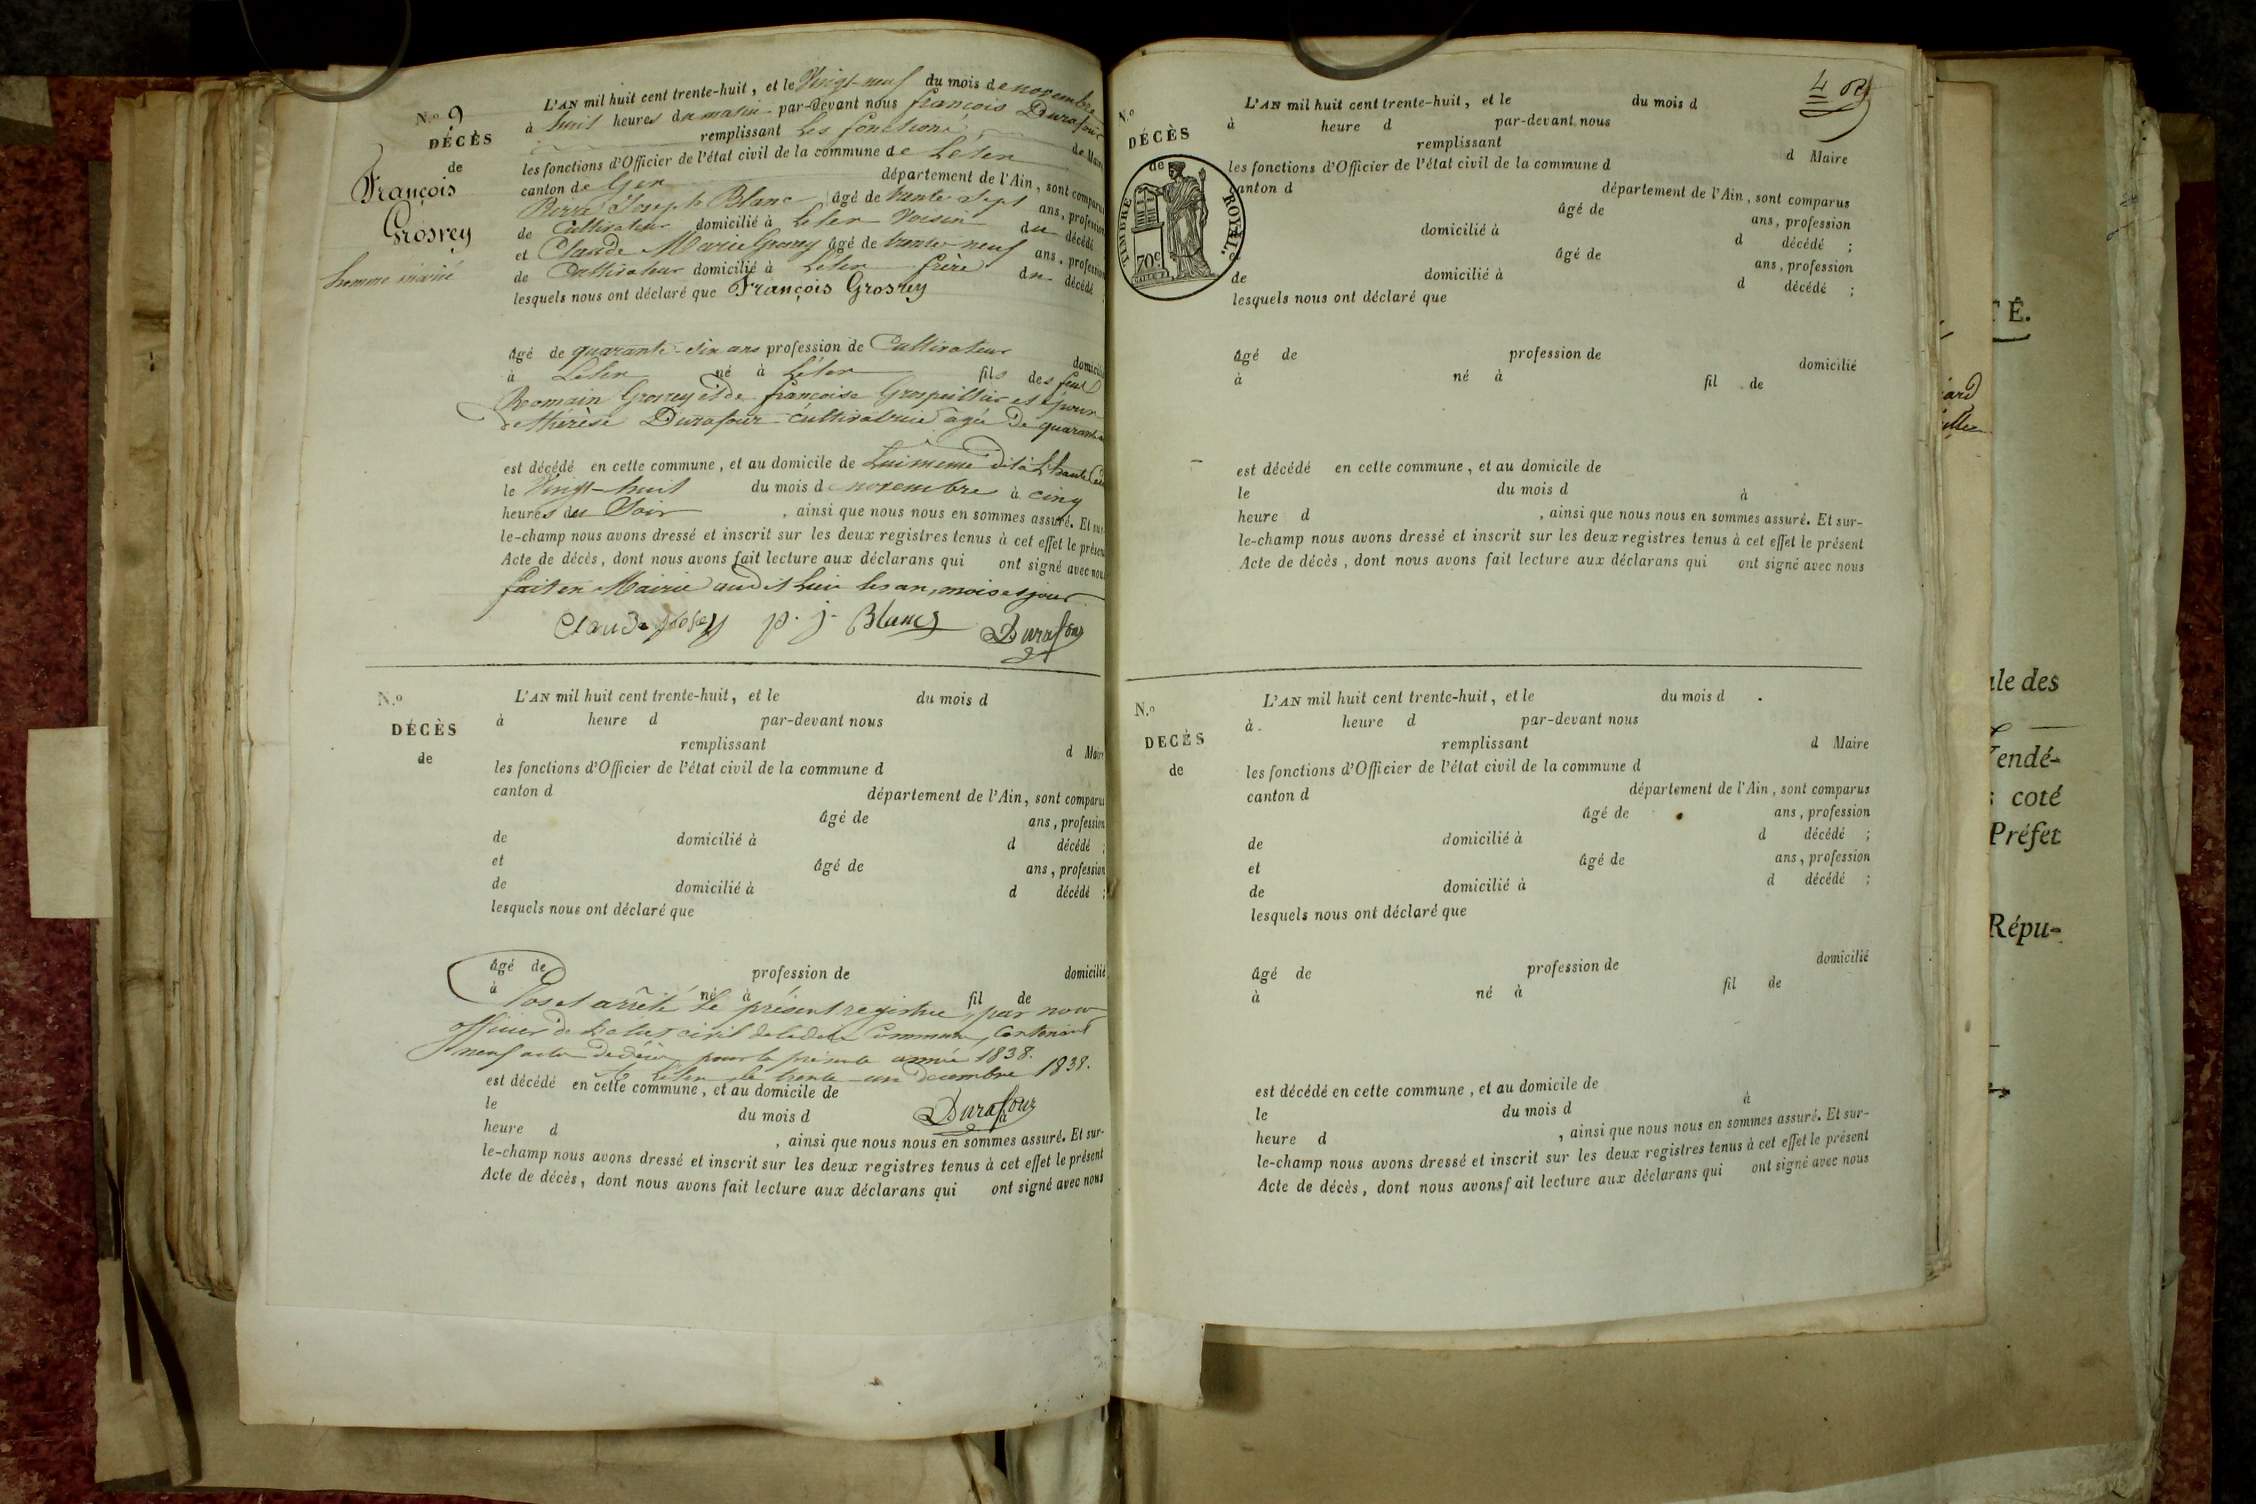 N.o 9
DÉCÈS
de
François
Grosrey
homme marié
L'AN mil huit cent trente-huit, et le Vingt-neuf du mois de novembre
à huit heures du matin par-devant nous françois Durafour
remplissant les fonctions de Maire
les fonctions d'Officier de l'état civil de la commune de Lélex
canton de Gex département de l'Ain, sont comparus
Pierre Joseph Blanc âgé de trente sept ans, profession
de Cultivateur domicilié à Lélex voisin du décédé
et Claude Marie Grosrey âgé de trente-neuf ans, profession
de Cultivateur domicilié à Lélex frère du décédé ;
lesquels nous ont déclaré que François Grosrey
âgé de quarante-six ans profession de Cultivateur domicilié
à Lélex né à Lélex fils des feux
Romain Grosrey et de françoise et époux
de thérèse Durafour cultivatrice agée de quarante
est décédé en cette commune, et au domicile de Lui même dit à
le Vingt-huit du mois de novembre à cinq
heures du Soir , ainsi que nous nous en sommes assuré. Et sur-
le-champ nous avons dressé et inscrit sur les deux registres tenus à cet effet le présent
Acte de décès, dont nous avons fait lecture aux déclarans qui ont signé avec nous
fait en Mairie audit Lieu les an, mois et jour
Claude grosrey p. j. Blanc Durafour
N.o
DÉCÈS
de
L'AN mil huit cent trente-huit, et le du mois d
à heure d par-devant nous
remplissant d Maire
les fonctions d'Officier de l'état civil de la commune d
canton d département de l'Ain, sont comparus
âgé de ans, profession
de domicilié à d décédé ;
et âgé de ans, profession
de domicilié à d décédé ;
lesquels nous ont déclaré que
âgé de profession de domicilié
à né à fil de
Clos et arrêté le présent registre, par nous
officier de l'état civil de ladite Commune, Contenant
neuf actes de décès, pour la présente année 1838.
à Lélex le trente-un Decembre 1838.
est décédé en cette commune, et au domicile de
le du mois d à
Durafour
heure d , ainsi que nous nous en sommes assuré. Et sur-
le-champ nous avons dressé et inscrit sur les deux registres tenus à cet effet le présent
Acte de décès, dont nous avons fait lecture aux déclarans qui ont signé avec nous
4
N.o
DÉCÈS
de
TIMBRE ROYAL.
70c
L'AN mil huit cent trente-huit, et le du mois d
à heure d par-devant nous
remplissant d Maire
les fonctions d'Officier de l'état civil de la commune d
canton d département de l'Ain, sont comparus
âgé de ans, profession
domicilié à d décédé ;
âgé de ans, profession
de domicilié à d décédé ;
lesquels nous ont déclaré que
âgé de profession de domicilié
à né à fil de
est décédé en cette commune, et au domicile de
le du mois d à
heure d , ainsi que nous nous en sommes assuré. Et sur-
le-champ nous avons dressé et inscrit sur les deux registres tenus à cet effet le présent
Acte de décès, dont nous avons fait lecture aux déclarans qui ont signé avec nous
N.o
DÉCÈS
de
L'AN mil huit cent trente-huit, et le du mois d
à heure d par-devant nous
remplissant d Maire
les fonctions d'Officier de l'état civil de la commune d
canton d département de l'Ain, sont comparus
âgé de ans, profession
de domicilié à d décédé ;
et âgé de ans, profession
de domicilié à d décédé ;
lesquels nous ont déclaré que
âgé de profession de domicilié
à né à fil de
est décédé en cette commune, et au domicile de
le du mois d à
heure d , ainsi que nous nous en sommes assuré. Et sur-
le-champ nous avons dressé et inscrit sur les deux registres tenus à cet effet le présent
Acte de décès, dont nous avons fait lecture aux déclarans qui ont signé avec nous
TÉ.
ale des
Vendé-
coté
Préfet
Répu-